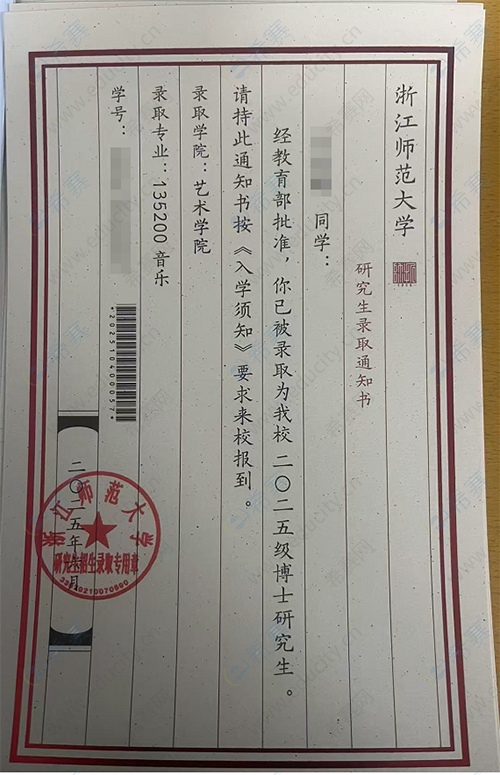 浙江师范大学
研究生录取通知书
同学：
经教育部批准，你已被录取为我校二〇二五级博士研究生。
请持此通知书按《入学须知》要求来校报到。
录取学院：艺术学院
录取专业：135200 音乐
学号：
*202510400057*
二〇二五年六月
浙江师范大学
研究生招生录取专用章
希赛网
www.educity.cn